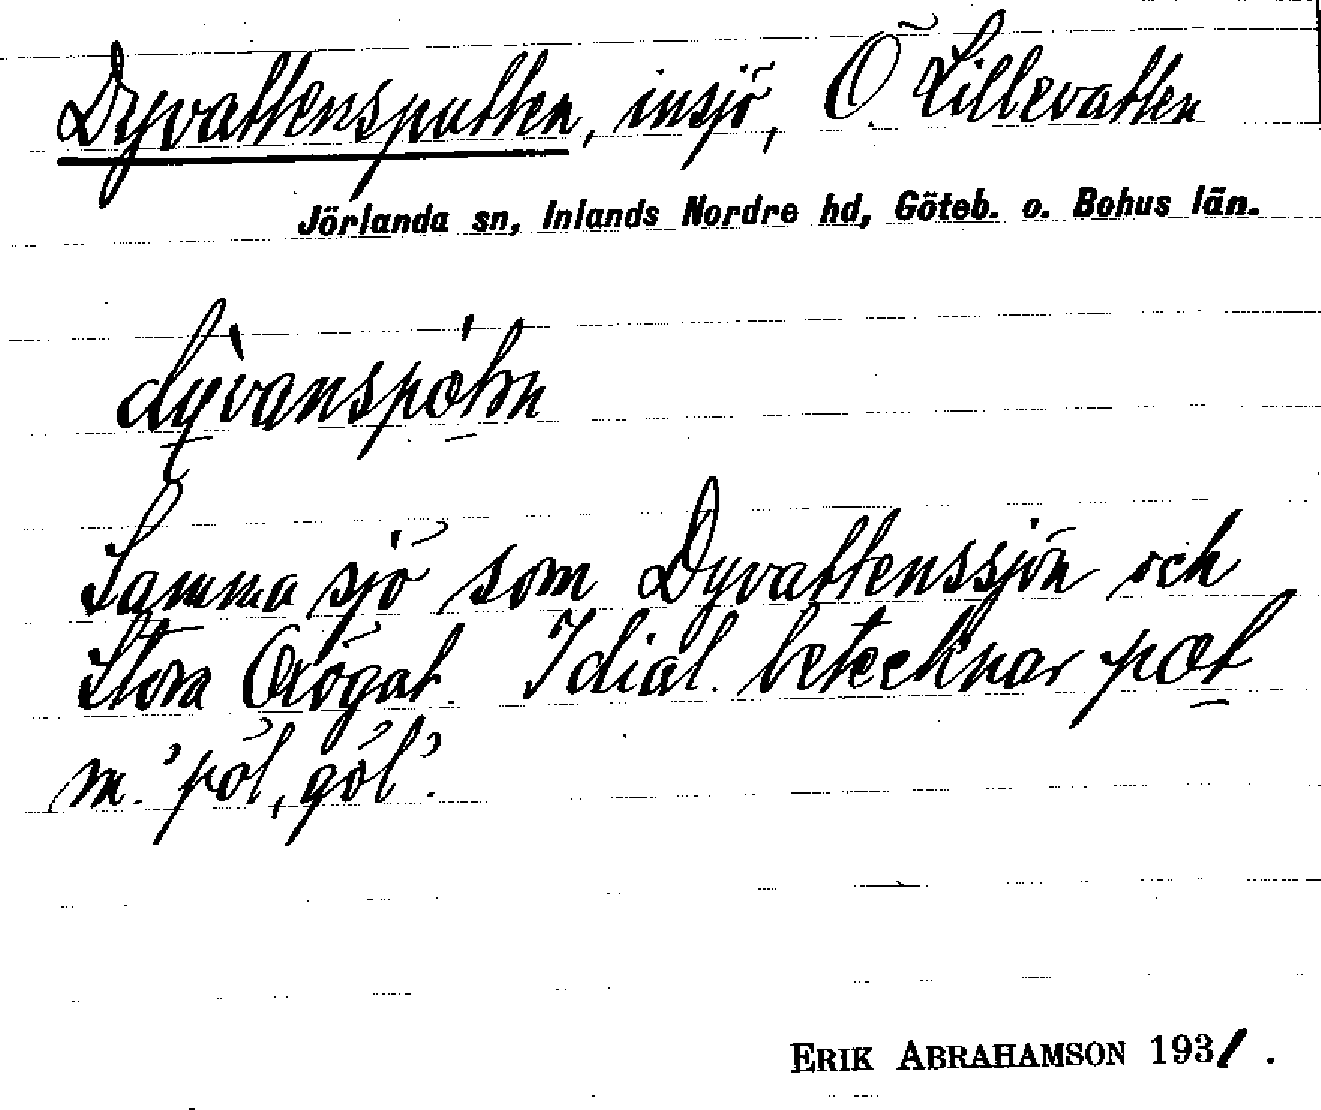 Dyvattensputten, insjö, Ö. Lillevatten
Jörlanda sn, Inlands Nordre hd, Göteb. o. Bohus län.
Samma sjö som Dyvattenssjön och
Stora Oxögat. I dial. betecknar pœt
m. 'pöl, göl'.
ERIK ABRAHAMSON 1931.